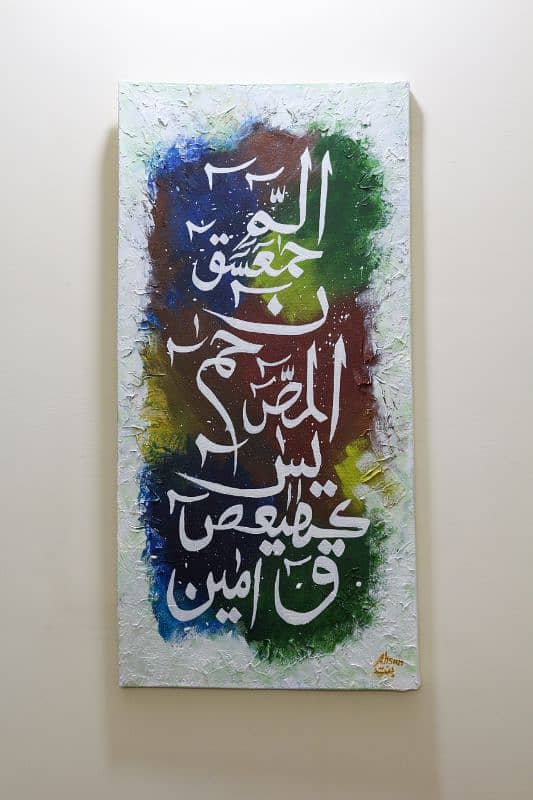 الٓمّٓ
حمٓعٓسٓقٓ
نٓ
حمٓ
الٓمّٓصٓ
يٰسٓ
كهيعصٓ
قٓ امين
Ahsan